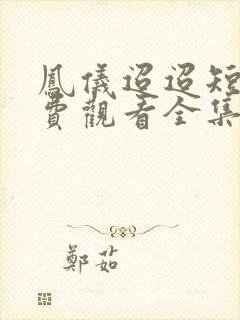 鳳儀迢迢短
費觀看全集
鄭茹